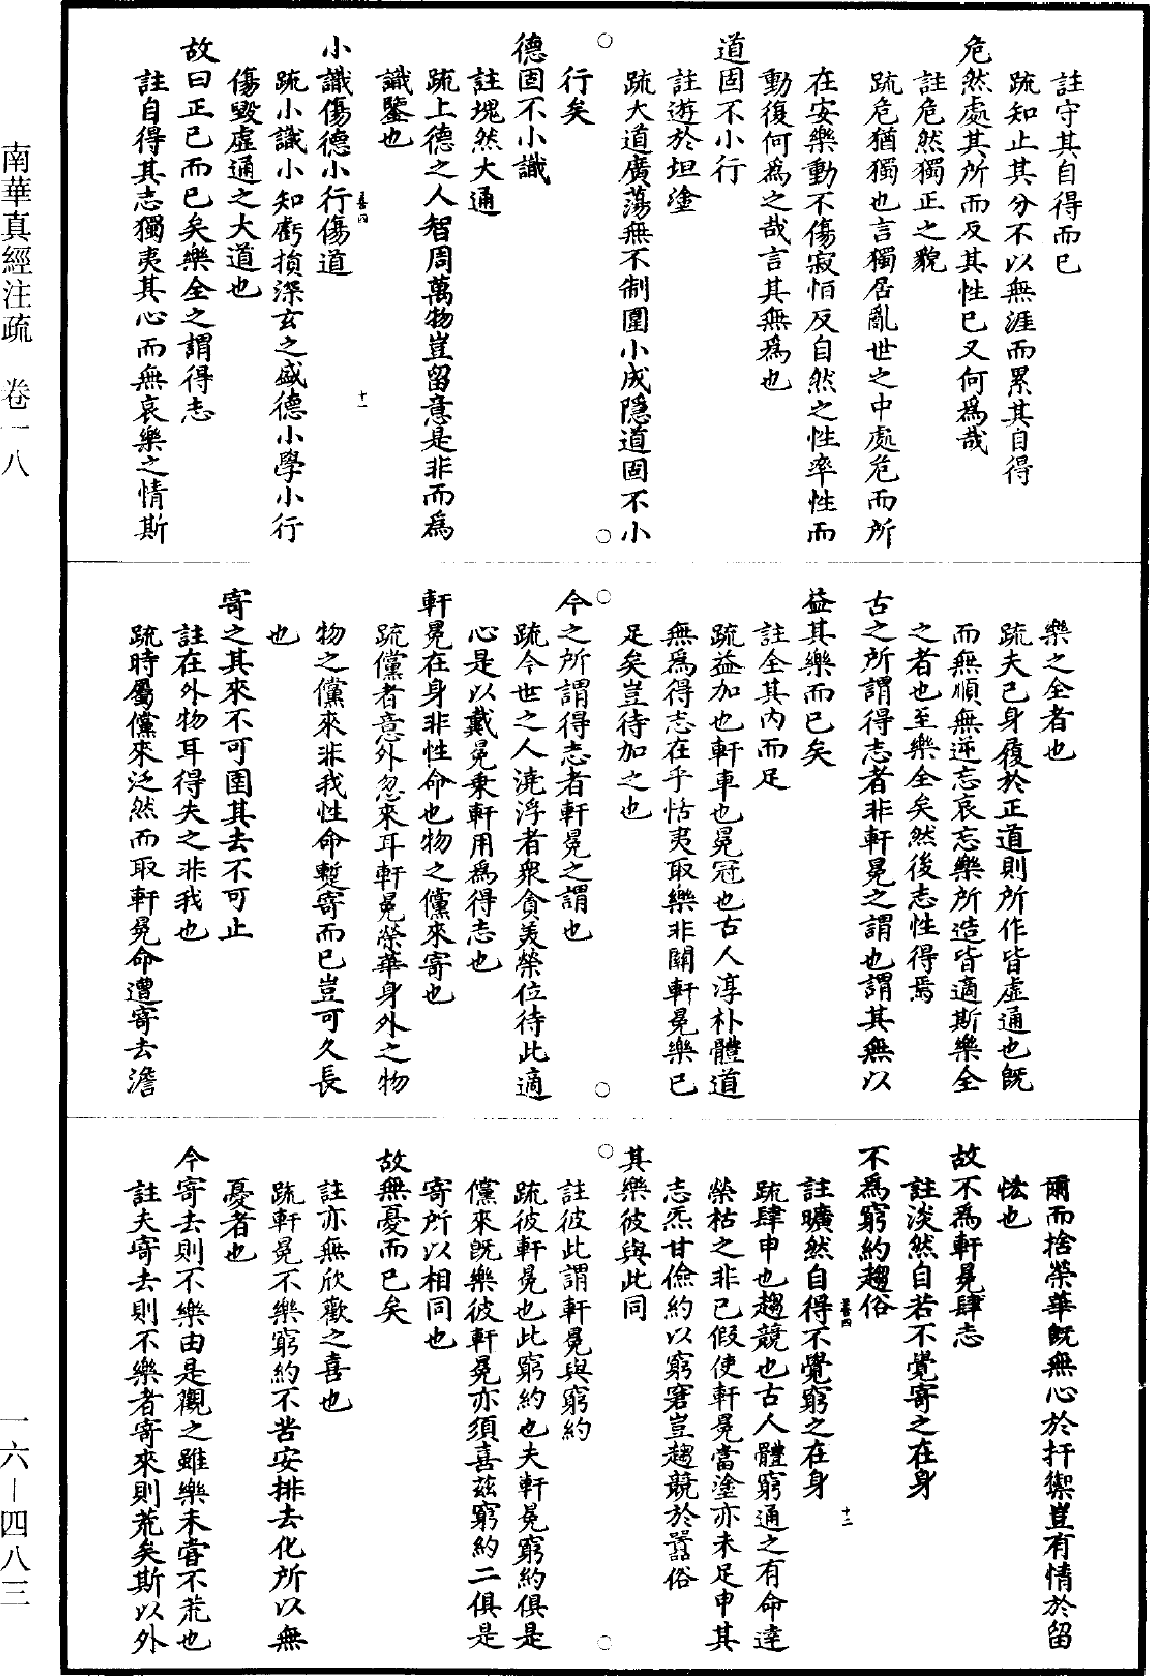 註守其自得而已
疏知止其分不以無涯而累其自得
危然處其所而反其性已又何爲哉
註危然獨正之貌
疏危猶獨也言獨居亂世之中處危而所
在安樂動不傷寂恒反自然之性率性而
動復何爲之哉言其無爲也
道固不小行
註遊於坦塗
疏大道廣蕩無不制圍小成隱道固不小
行矣
德固不小識
註塊然大通
疏上德之人智周萬物豈留意是非而爲
識鑒也
小識傷德小行傷道
疏小識小知虧損深玄之盛德小學小行
傷毀虛通之大道也
故曰正己而已矣樂全之謂得志
註自得其志獨夷其心而無哀樂之情斯
樂之全者也
疏夫己身履於正道則所作皆虛通也既
而無順無逆忘哀忘樂所造皆適斯樂全
之者也至樂全矣然後志性得焉
古之所謂得志者非軒冕之謂也謂其無以
益其樂而已矣
註全其內而足
疏益加也軒車也冕冠也古人淳朴體道
無爲得志在乎恬夷取樂非關軒冕樂已
足矣豈待加之也
今之所謂得志者軒冕之謂也
疏今世之人澆浮者衆貪美榮位待此適
心是以戴冕乘軒用爲得志也
軒冕在身非性命也物之儻來寄也
疏儻者意外忽來耳軒冕榮華身外之物
物之儻來非我性命蹔寄而已豈可久長
也
寄之其來不可圉其去不可止
註在外物耳得失之非我也
疏時屬儻來泛然而取軒冕命遭寄去澹
爾而捨榮華既無心於扞禦豈有情於留
恡也
故不爲軒冕肆志
註淡然自若不覺寄之在身
不爲窮約趨俗
註曠然自得不覺窮之在身
疏肆申也趨競也古人體窮通之有命達
榮枯之非己假使軒冕當塗亦未足申其
志炁甘儉約以窮窘豈趨競於囂俗
其樂彼與此同
註彼此謂軒冕與窮約
疏彼軒冕也此窮約也夫軒冕窮約俱是
儻來既樂彼軒冕亦須喜茲窮約二俱是
寄所以相同也
故無憂而已矣
註亦無欣歡之喜也
疏軒冕不樂窮約不苦安排去化所以無
憂者也
今寄去則不樂由是觀之雖樂未嘗不荒也
註夫寄去則不樂者寄來則荒矣斯以外
十一
十二
南華真經注疏 卷一八
一六—四八三